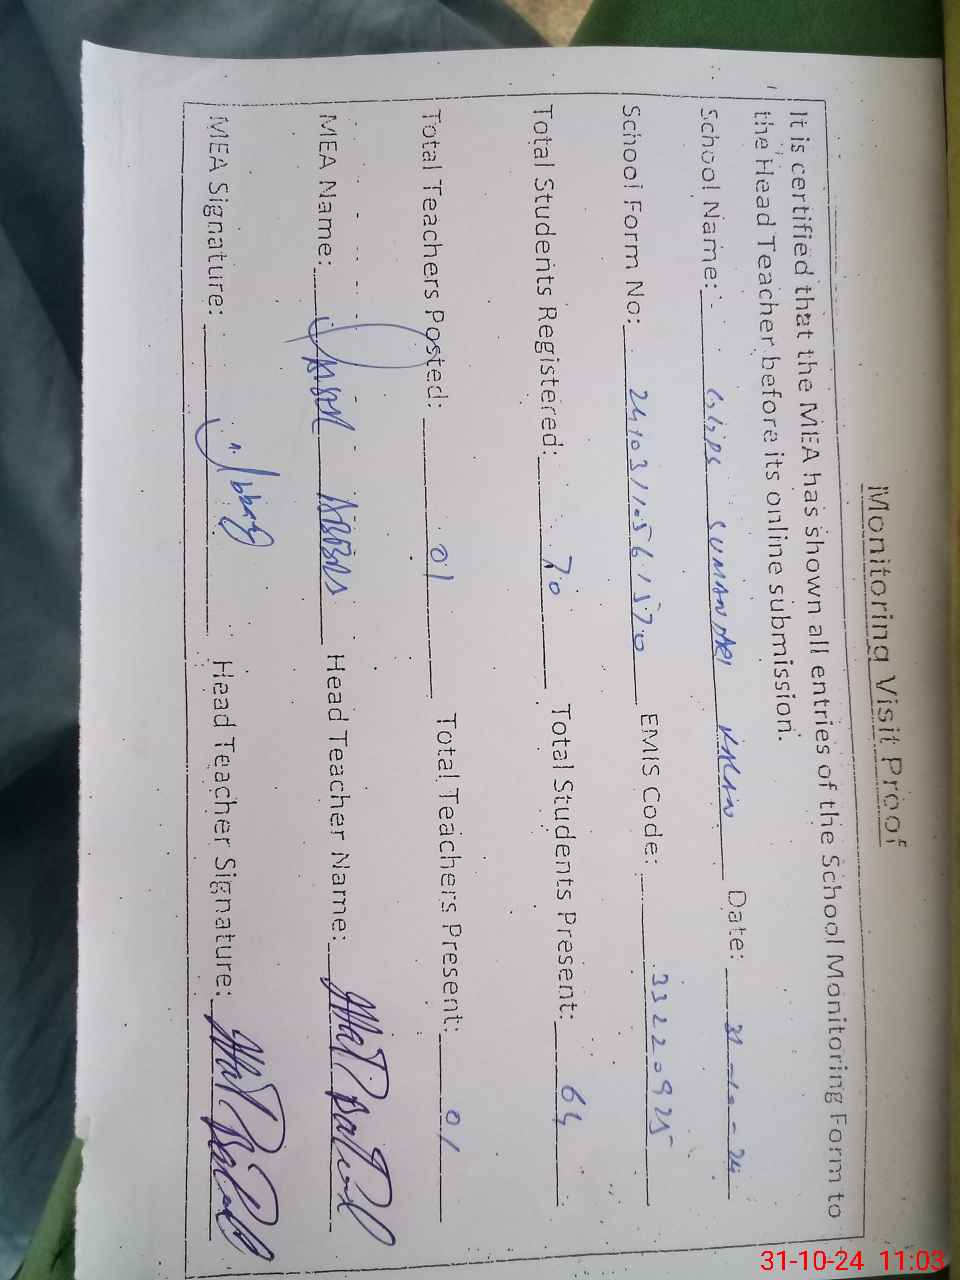 Monitoring Visit Proof
It is certified that the MEA has shown all entries of the School Monitoring Form to
the Head Teacher before its online submission.
School Name: GBPS SUMANDAR KHAN Date: 31-10-24
School Form No: 24103110561570 EMIS Code: 33220925
Total Students Registered: 70 Total Students Present: 64
Total Teachers Posted: 01 Total Teachers Present: 01
MEA Name: Head Teacher Name:
MEA Signature: Head Teacher Signature:
31-10-24 11:03